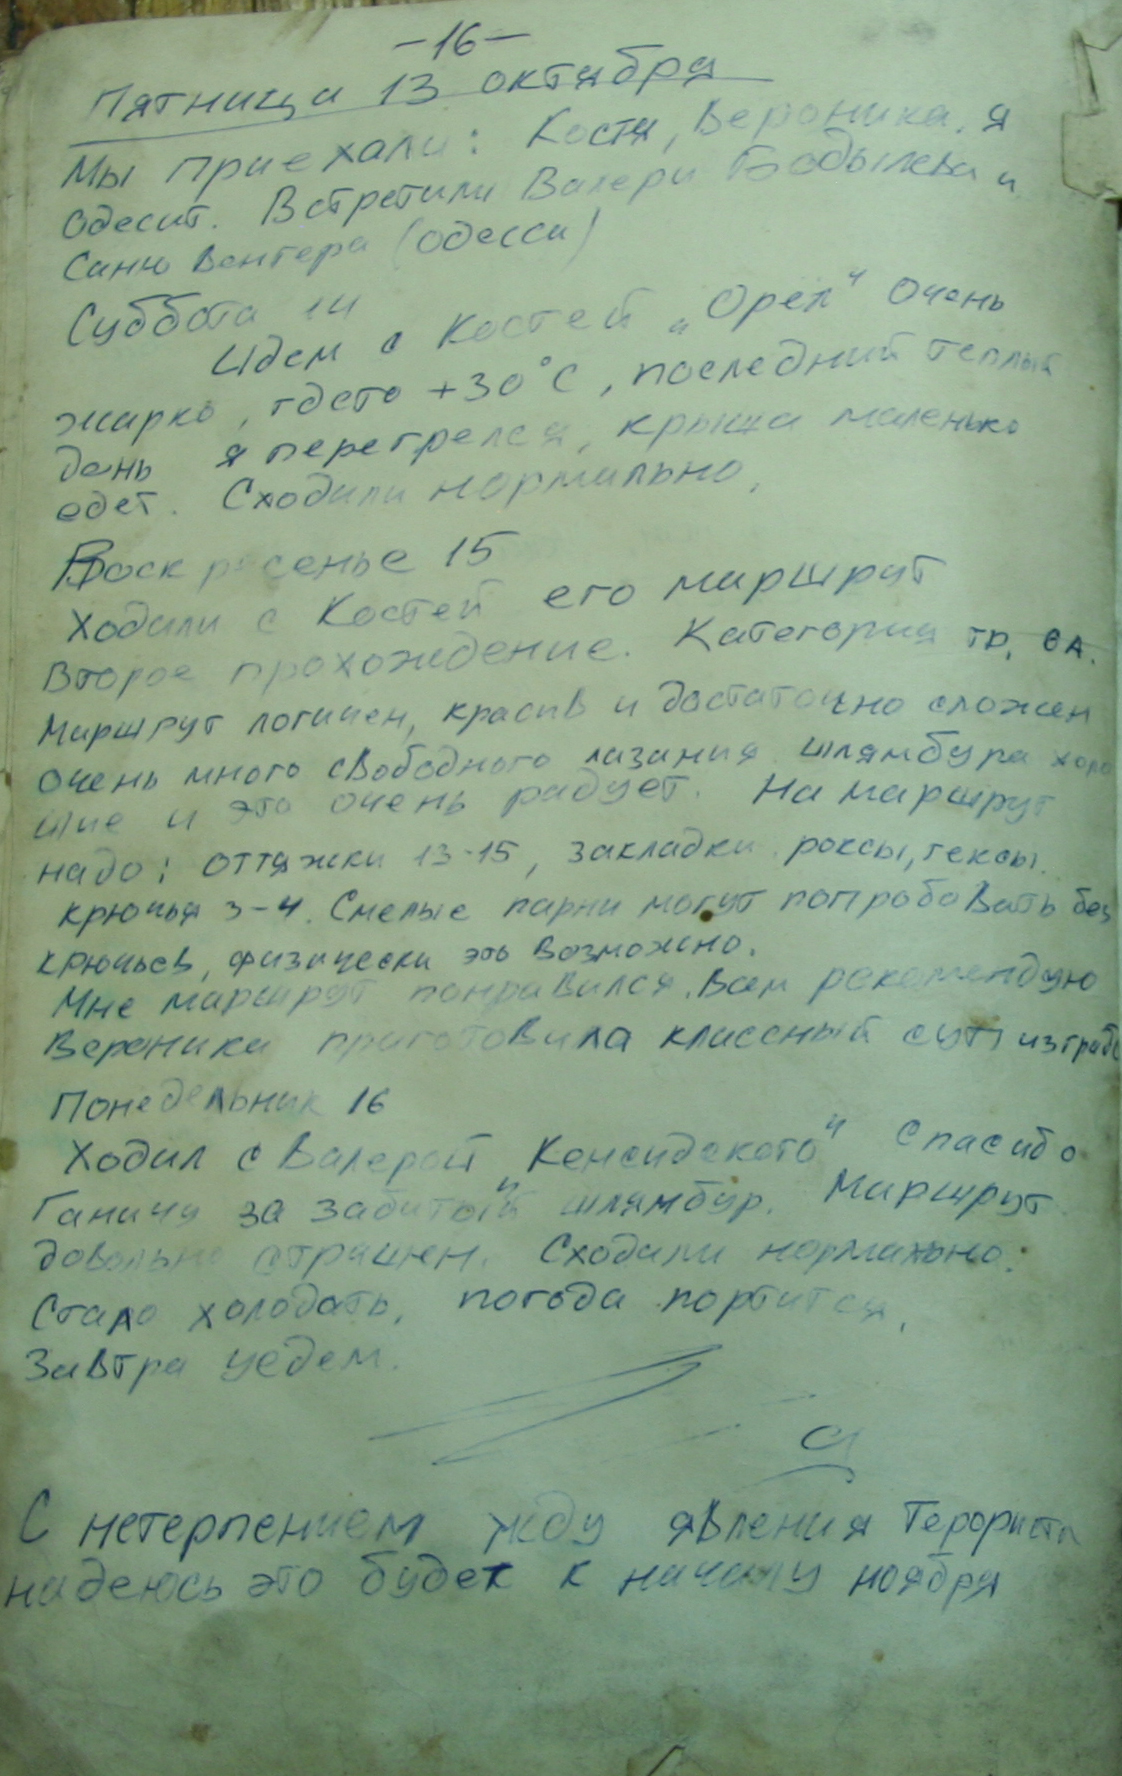 -16-
Пятница 13 октября
Мы приехали: Костя, Вероника, я
Одесит. Встретили Валери Бодылева и
Саню Венгера (Одесса)
Суббота 14
Идем с Костей „Орёл" Очень
жарко, гдето +30°С, последний теплый
день я перегрелся, крыша маленько
едет. Сходили нормально.
Воскресенье 15
Ходили с Костей его маршрут
Второе прохождение. Категория тр. 6А.
Маршрут логичен, красив и достаточно сложен
очень много свободного лазания шлямбура хоро
шие и это очень радует. На маршрут
надо: оттяжки 13-15, закладки роксы, гексы.
крючья 3-4. Смелые парни могут попробовать без
крючьев, физически это возможно.
Мне маршрут понравился. Вам рекомендую
Вероника приготовила классный суп из
Понедельник 16
Ходил с Валерой „Кенсидского" Спасибо
Ганичу за забитый шлямбур. Маршрут
довольно страшен. Сходили нормально.
Стало холодать, погода портится,
Завтра уедем.
С нетерпением жду явления Терориста
надеюсь это будет к началу ноября